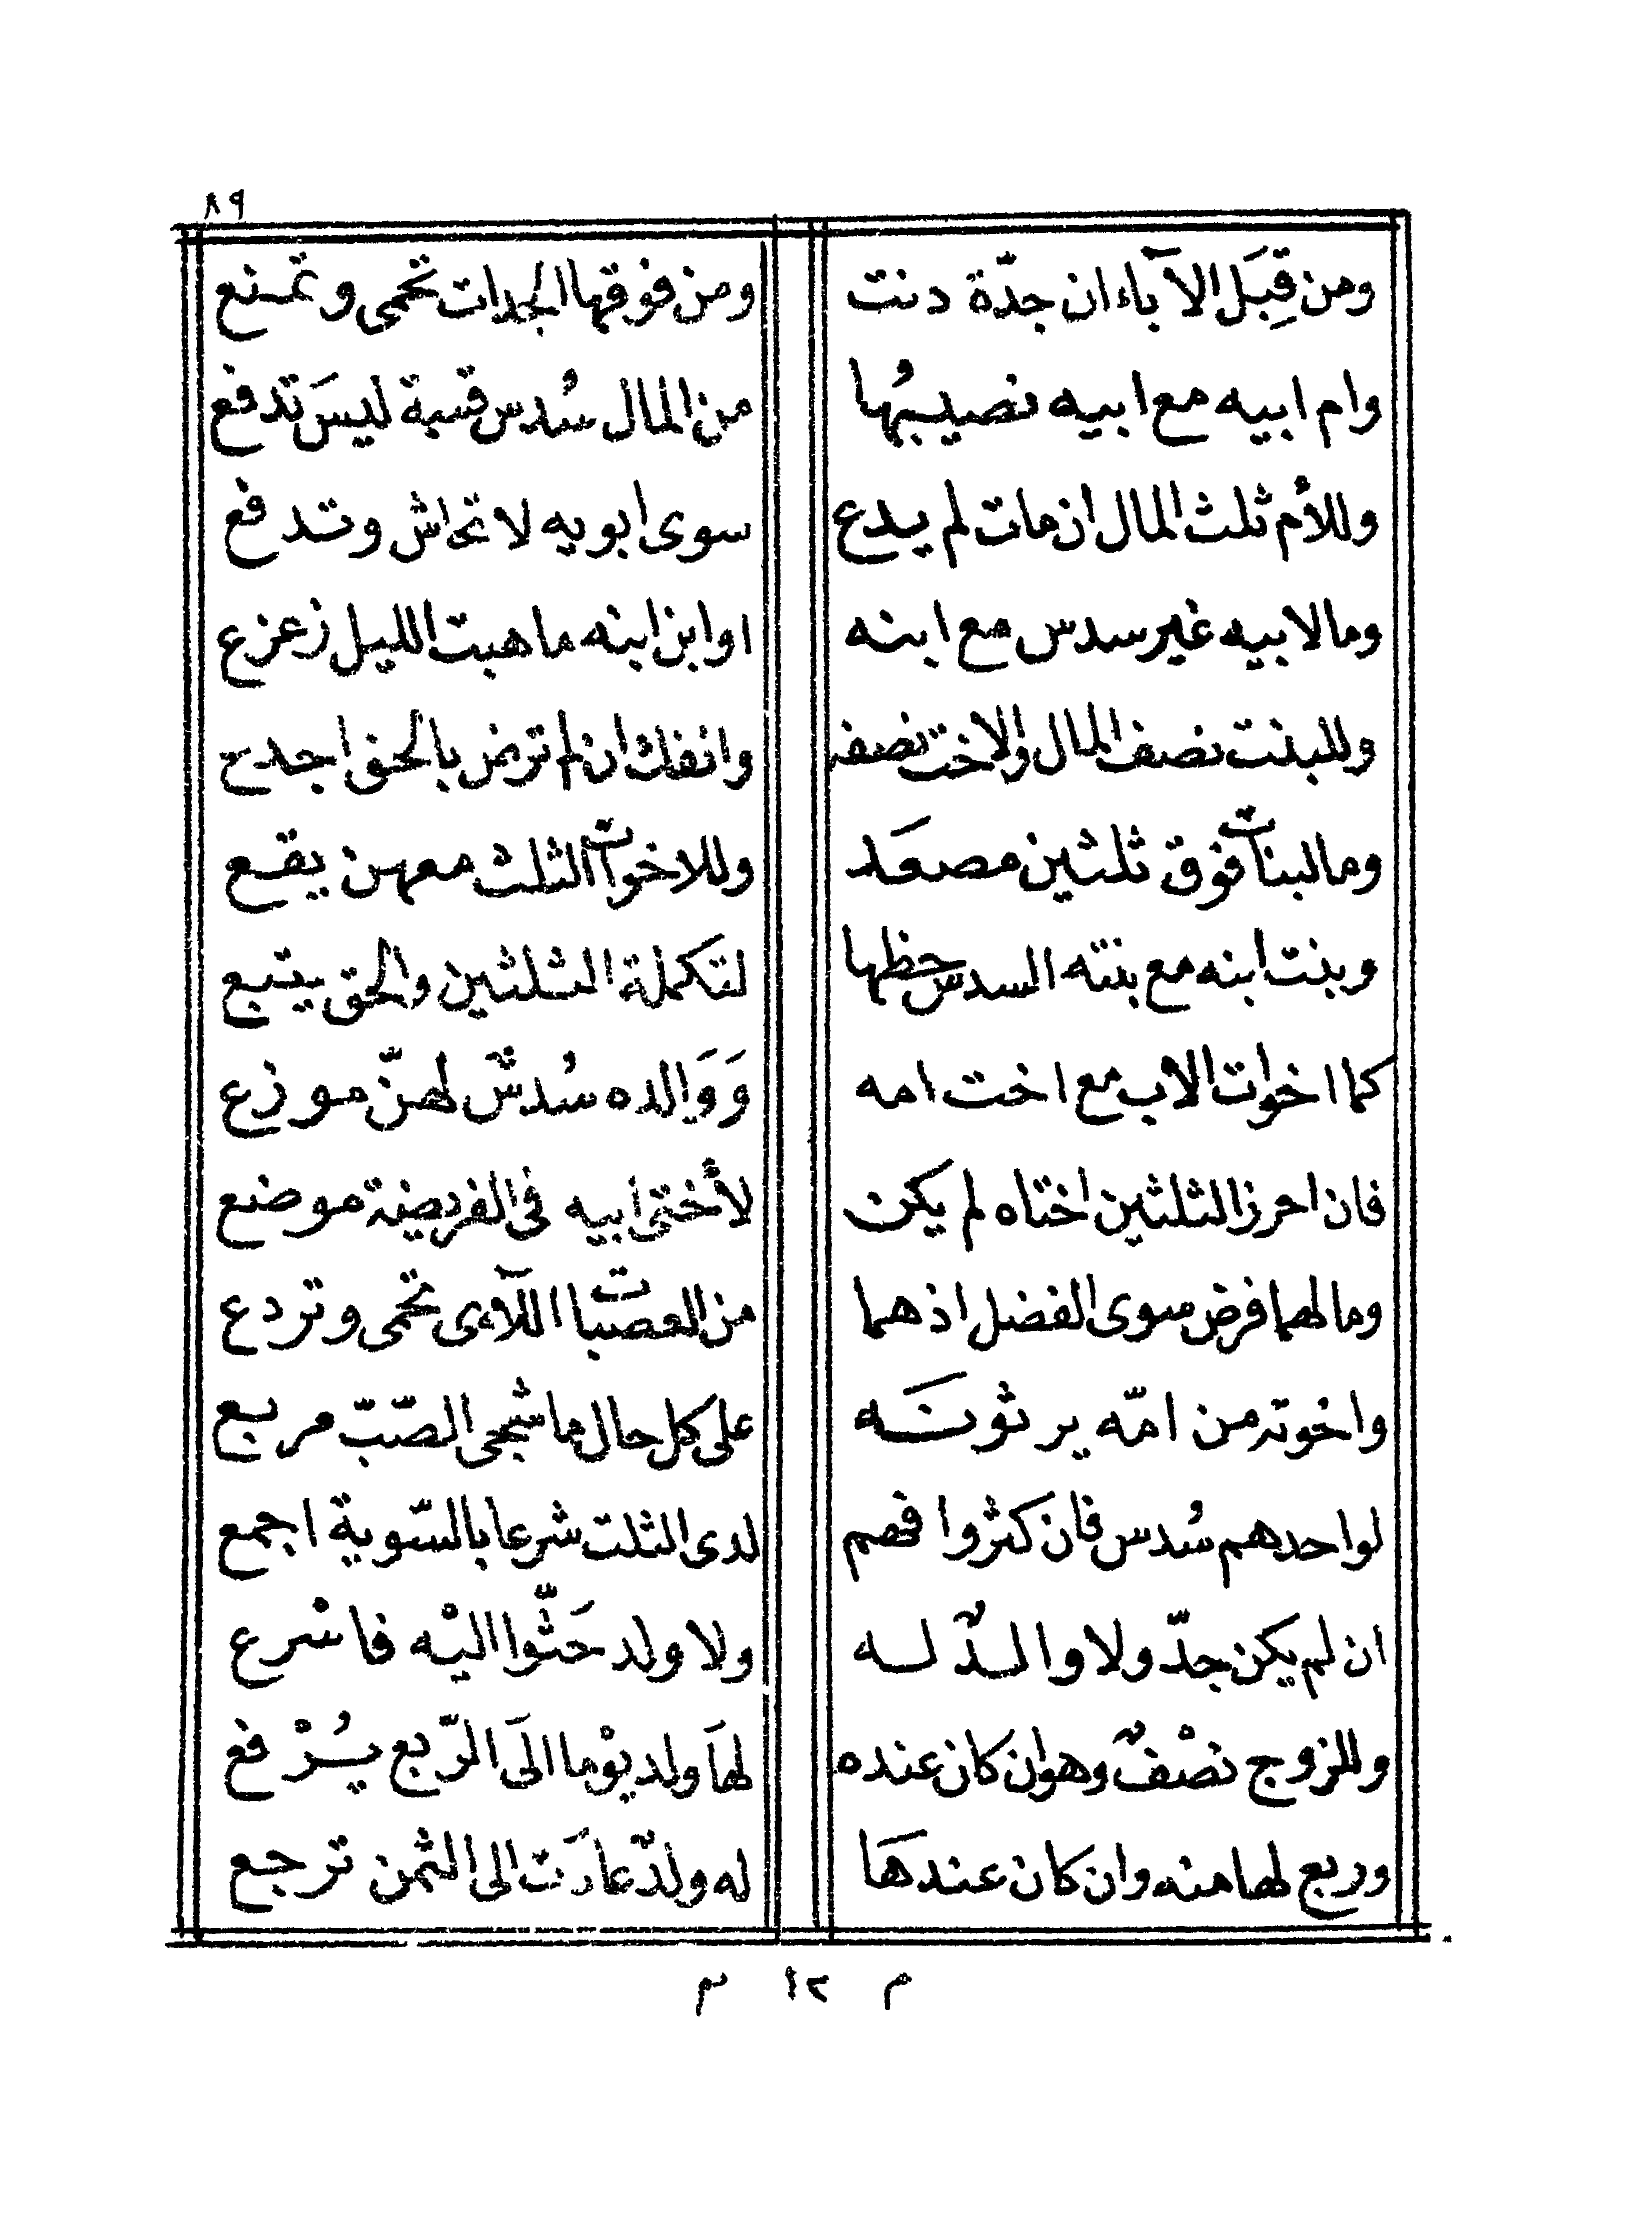 ٨٩
ومن قِبَل الآباء ان جدّة دنت ومن فوقها الجدات تحمى وتمنع
وام ابيه مع ابيه نصيبُها من المال سُدس قسمة ليسَ تدفع
وللأم ثلث المال ان مات لم يدع سوى ابويه لا تحاش وتدفع
وما لابيه غير سدس مع ابنه او ابن ابنه ما هبت الليل زعزع
وللبنت نصف المال والاخت نصفه وانفك ان لم ترض بالحق اجدع
وما لبنات فوق ثلثين مصعَد وللاخوات الثلث معهن يقع
وبنت ابنه مع بنته السدس حظها لتكملة الثلثين والحق يتبع
كما اخوات الاب مع اخت امه وَوَالده سُدسٌ لهنّ موزع
فان احرز الثلثين اختاه لم يكن لأختى ابيه فى الفريضة موضع
وما لهما فرض سوى الفضل اذ هما من العصبات اللآءى تحمى وتردع
واخوته من امّه يرثونَه على كل حال ما شجى الصّبّ مربع
لواحدهم سُدس فان كثروا فهم لدى الثلث شرعا بالسّوية اجمع
ان لم يكن جدّ ولا والدٌ له ولا ولد حَثّوا اليْه فاسْرع
وللزوج نصْفٌ وهو ان كان عنده لهَا ولد يوْما الَى الرّبع يُسرْفع
وربع لها منه وان كان عندهَا له ولدٌ عادَت الى الثمن ترجع
م ١٢ س